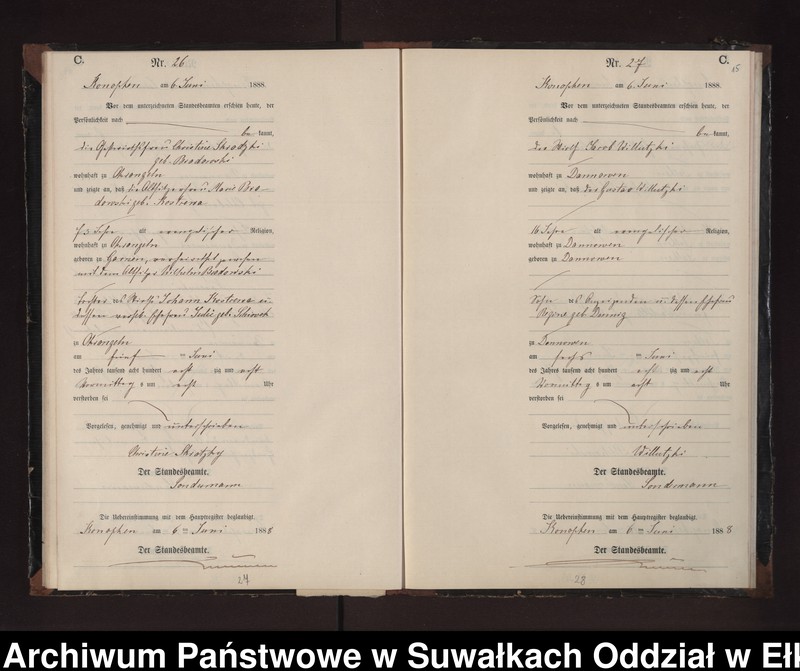 C.
Nr. 26
Konopken am 6 Juni 1888.
Vor dem unterzeichneten Standesbeamten erschien heute, der
Persönlichkeit nach
be kannt,
die Christine Skrodzki
geb. Bradowski
wohnhaft zu
und zeigte an, daß die Altsitzerfrau Marie Bra-
dowski geb. Kostrewa
Jahre alt evangelischer Religion,
wohnhaft zu
geboren zu verheirathet gewesen
mit dem Altsitzer Wilhelm Bradowski
Tochter des Wirths Johann Kostrewa u.
dessen Ehefrau Julie geb.
zu
am fünf ten Juni
des Jahres tausend acht hundert acht zig und acht
Vormittag s um acht Uhr
verstorben sei
Vorgelesen, genehmigt und unterschrieben
Christine Skrotzky
Der Standesbeamte.
Sondermann
Die Uebereinstimmung mit dem Hauptregister beglaubigt.
Konopken am 6 ten Juni 1888
Der Standesbeamte.
27
Nr. 27
C.
15
Konopken am 6. Juni 1888.
Vor dem unterzeichneten Standesbeamten erschien heute, der
Persönlichkeit nach
be kannt,
der Wirth Jacob Willutzki
wohnhaft zu Dannowen
und zeigte an, daß der Gustav Willutzki
16 Jahre alt evangelischer Religion,
wohnhaft zu Dannowen
geboren zu Dannowen
Sohn des Anzeigenden u. dessen Ehefrau
Regine geb.
zu Dannowen
am sechs ten Juni
des Jahres tausend acht hundert acht zig und acht
Vormittag s um acht Uhr
verstorben sei
Vorgelesen, genehmigt und unterschrieben
Willutzki
Der Standesbeamte.
Sondermann
Die Uebereinstimmung mit dem Hauptregister beglaubigt.
Konopken am 6 ten Juni 1888
Der Standesbeamte.
28
Archiwum Państwowe w Suwałkach Oddział w Eł